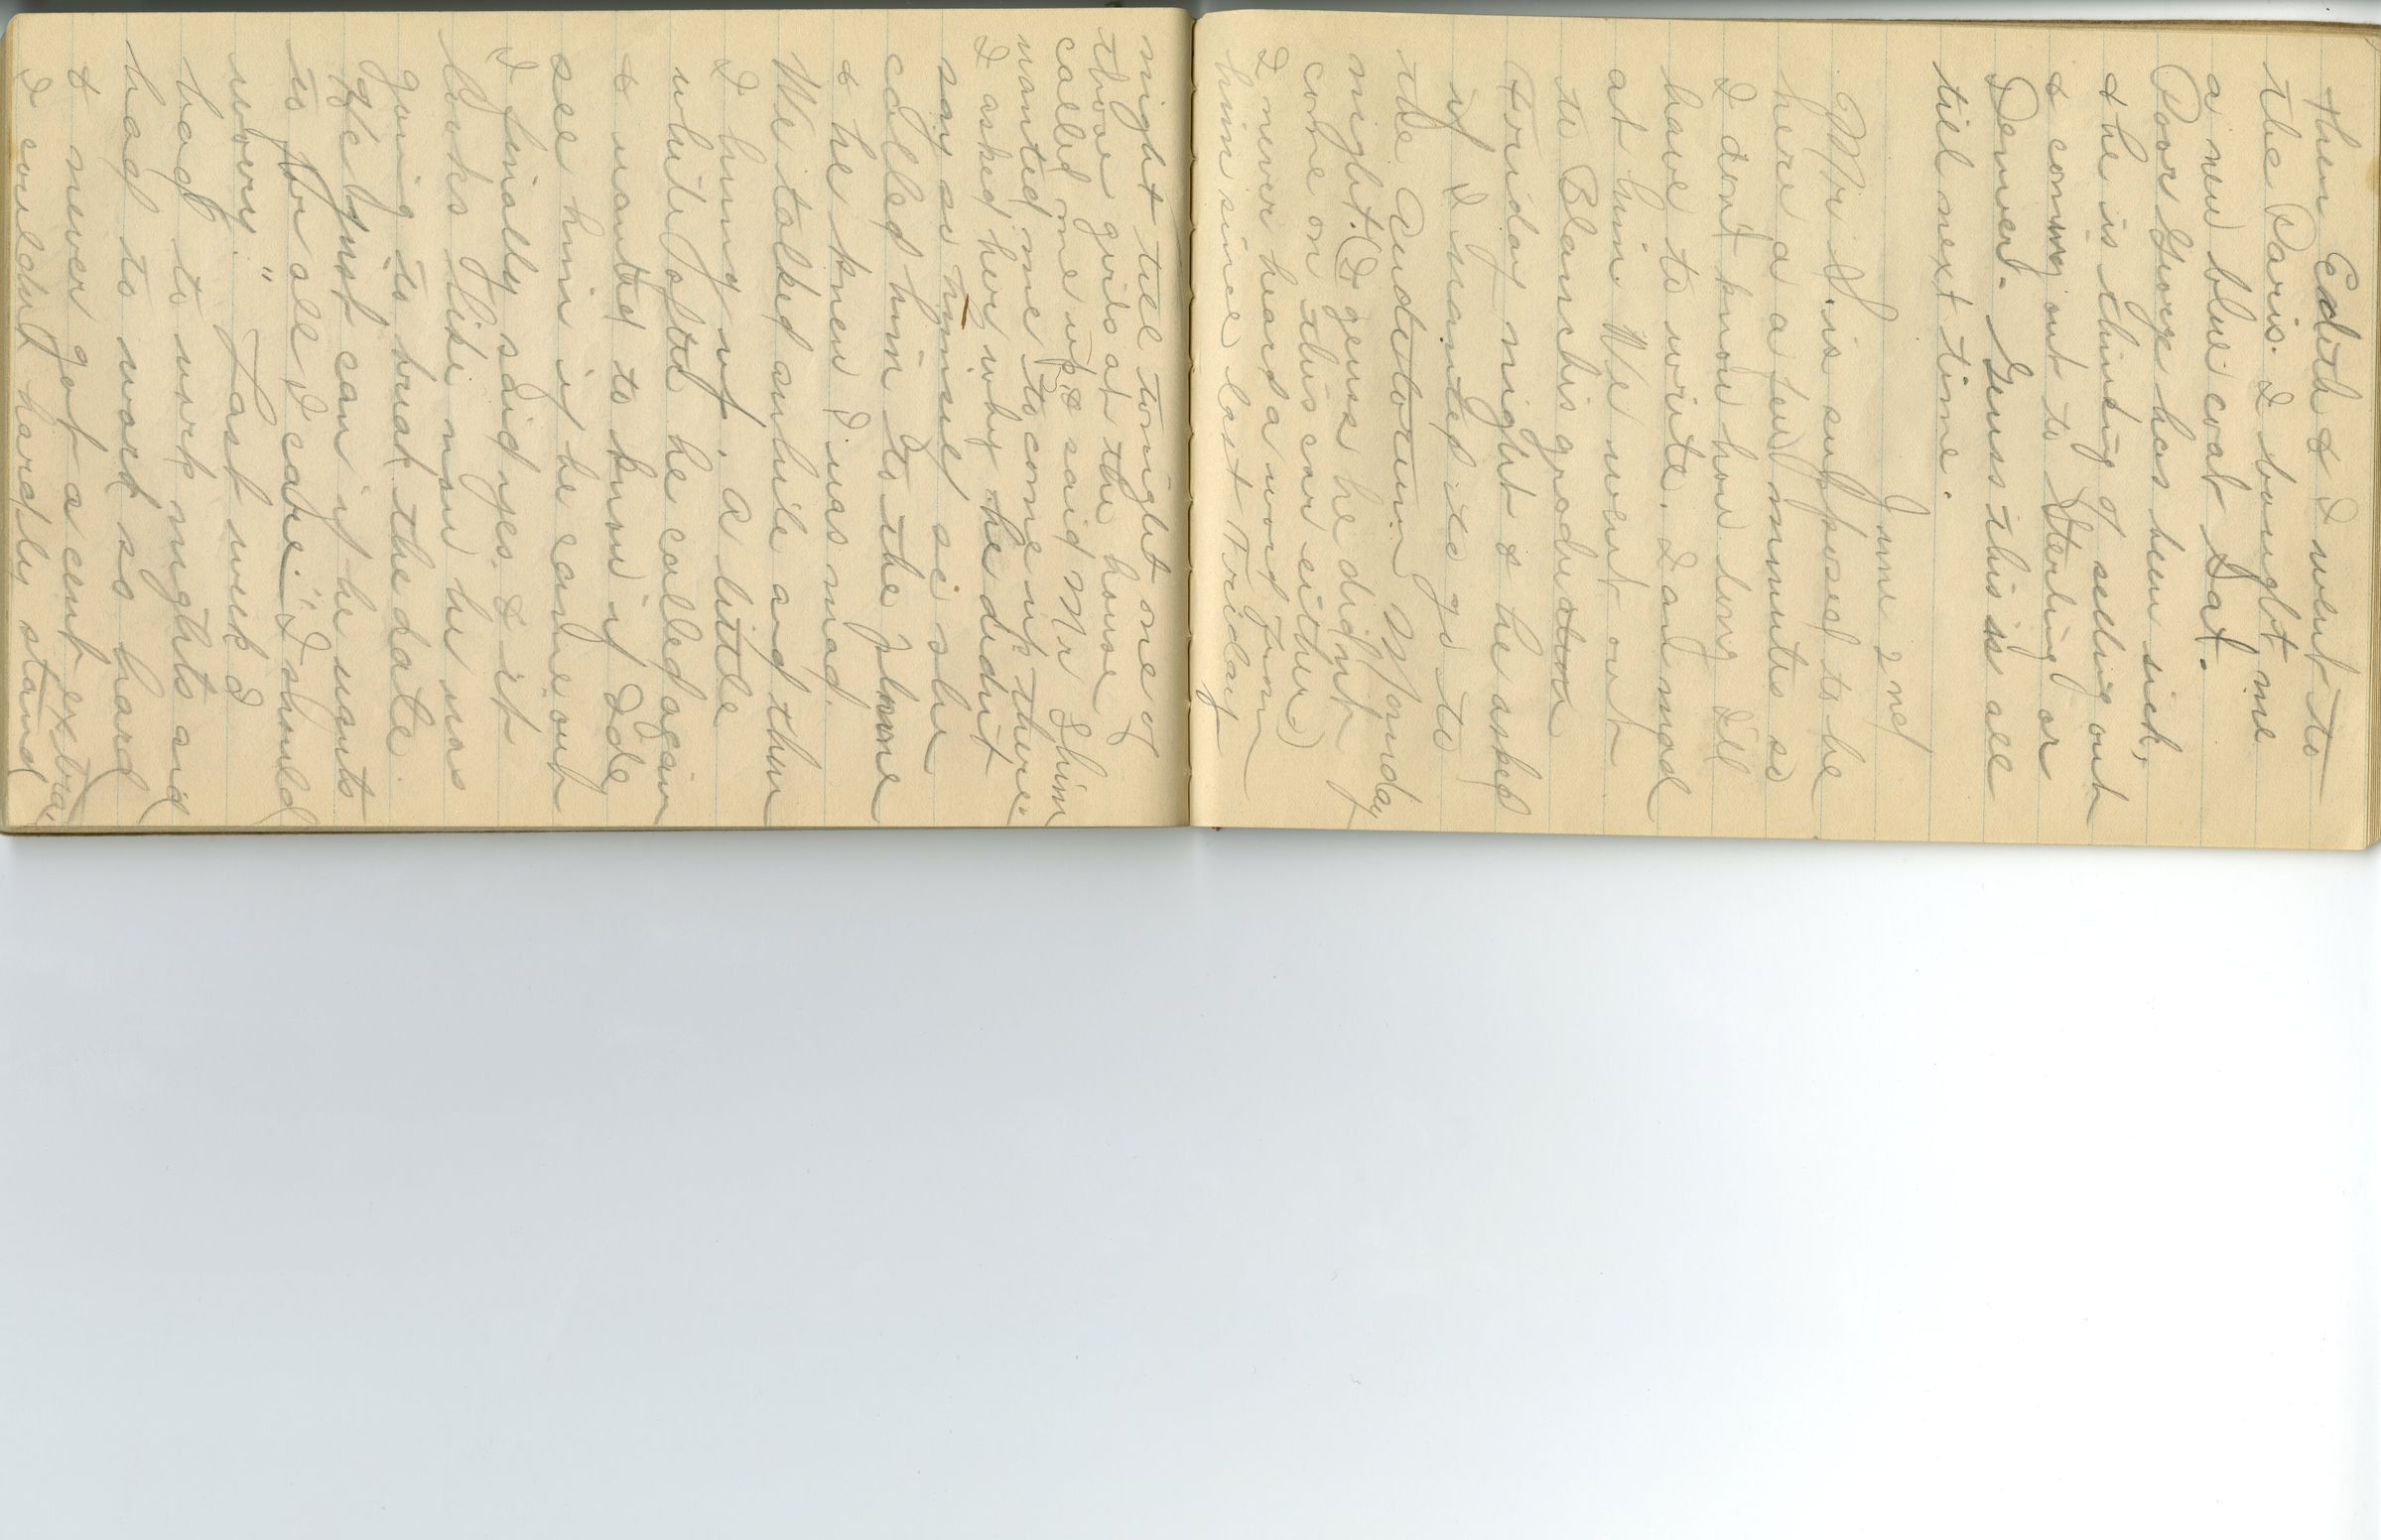 then Edith & I went to
the Paris. I bought me
a new blue coat Sat.
Poor George has been sick,
& he is thinking of selling out
& coming out to Sterling or
Denver. Guess this is all
till next time.
June 2nd
Mr S. is supposed to be
here a few minutes so
I dont know how long Ill
have to write. I am mad
at him. We went out
to Blanchis graduation
Friday night & he asked
if I wanted to go to
the Auditorium Monday
night. (I guess he didnt
come on this car either)
I never heard a word from
him since last Friday
night till tonight one of
those girls at the house
called me up & said Mr Shim
wanted me to come up there.
I asked her why he didnt
say so himself so she
called him to the phone
& he knew I was mad.
We talked awhile and then
I hung up. A little
while after he called again
& wanted to know if Ide
see him if he came out
I finally said yes. & it
looks like now he was
going to break the date.
He just can if he wants
to for all I care. "I should
worry." Last week I
had to work nights and
had to work so hard
& never got a cent extra
I couldnt hardly stand